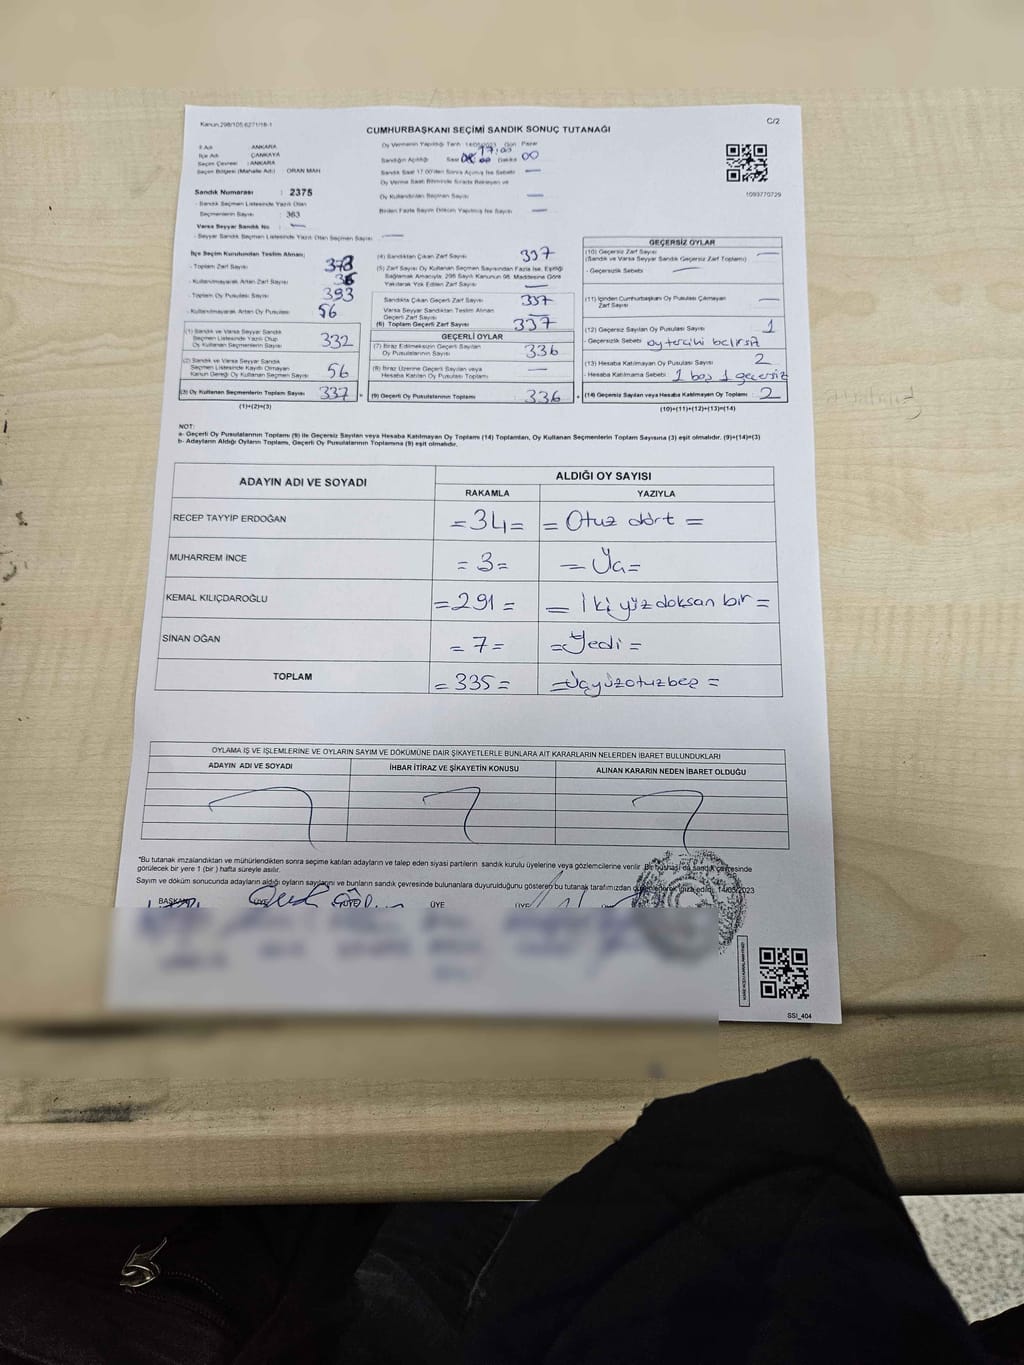 Kanun.298/105.6271/18-1
C/2
CUMHURBAŞKANI SEÇİMİ SANDIK SONUÇ TUTANAĞI
İl Adı : ANKARA
İlçe Adı : ÇANKAYA
Seçim Çevresi : ANKARA
Seçim Bölgesi (Mahalle Adı) : ORAN MAH
Sandık Numarası : 2375
- Sandık Seçmen Listesinde Yazılı Olan
Seçmenlerin Sayısı : 363
Varsa Seyyar Sandık No :
- Seyyar Sandık Seçmen Listesinde Yazılı Olan Seçmen Sayısı :
Oy Vermenin Yapıldığı Tarih 14/05/2023 Gün Pazar
17:00
Sandığın Açıldığı Saat Dakika 00
Sandık Saat 17.00'den Sonra Açılmış İse Sebebi
Oy Verme Saati Bitiminde Sırada Bekleyen ve
Oy Kullandırılan Seçmen Sayısı
Birden Fazla Sayım Döküm Yapılmış İse Sayısı
1093770729
İlçe Seçim Kurulundan Teslim Alınan;
- Toplam Zarf Sayısı : 373
- Kullanılmayarak Artan Zarf Sayısı : 36
- Toplam Oy Pusulası Sayısı : 393
- Kullanılmayarak Artan Oy Pusulası : 56
(1) Sandık ve Varsa Seyyar Sandık
Seçmen Listesinde Yazılı Olup
Oy Kullanan Seçmenlerin Sayısı 332
(2) Sandık ve Varsa Seyyar Sandık
Seçmen Listesinde Kayıtlı Olmayan
Kanun Gereği Oy Kullanan Seçmen Sayısı 56
(3) Oy Kullanan Seçmenlerin Toplam Sayısı 337
(1)+(2)=(3)
(4) Sandıktan Çıkan Zarf Sayısı 337
(5) Zarf Sayısı Oy Kullanan Seçmen Sayısından Fazla İse, Eşitliği
Sağlamak Amacıyla, 298 Sayılı Kanunun 98. Maddesine Göre
Yakılarak Yok Edilen Zarf Sayısı
Sandıkta Çıkan Geçerli Zarf Sayısı 337
Varsa Seyyar Sandıktan Teslim Alınan
Geçerli Zarf Sayısı
(6) Toplam Geçerli Zarf Sayısı 337
GEÇERLİ OYLAR
(7) İtiraz Edilmeksizin Geçerli Sayılan
Oy Pusulalarının Sayısı 336
(8) İtiraz Üzerine Geçerli Sayılan veya
Hesaba Katılan Oy Pusulası Toplamı
(9) Geçerli Oy Pusulalarının Toplamı 336
GEÇERSİZ OYLAR
(10) Geçersiz Zarf Sayısı
(Sandık ve Varsa Seyyar Sandık Geçersiz Zarf Toplamı)
- Geçersizlik Sebebi :
(11) İçinden Cumhurbaşkanı Oy Pusulası Çıkmayan
Zarf Sayısı
(12) Geçersiz Sayılan Oy Pusulası Sayısı 1
- Geçersizlik Sebebi : oy tercihi belirsiz
(13) Hesaba Katılmayan Oy Pusulası Sayısı 2
- Hesaba Katılmama Sebebi : 1 boş 1 geçersiz
(14) Geçersiz Sayılan veya Hesaba Katılmayan Oy Toplamı 2
(10)+(11)+(12)+(13)=(14)
NOT:
a- Geçerli Oy Pusulalarının Toplamı (9) ile Geçersiz Sayılan veya Hesaba Katılmayan Oy Toplamı (14) Toplamları, Oy Kullanan Seçmenlerin Toplam Sayısına (3) eşit olmalıdır. (9)+(14)=(3)
b- Adayların Aldığı Oyların Toplamı, Geçerli Oy Pusulalarının Toplamına (9) eşit olmalıdır.
ADAYIN ADI VE SOYADI ALDIĞI OY SAYISI
RAKAMLA YAZIYLA
RECEP TAYYİP ERDOĞAN =34= =Otuz dört=
MUHARREM İNCE =3=
KEMAL KILIÇDAROĞLU =291= =İkiyüzdoksan bir=
SİNAN OĞAN =7= =Yedi=
TOPLAM =335= =Üçyüzotuzbeş=
OYLAMA İŞ VE İŞLEMLERİNE VE OYLARIN SAYIM VE DÖKÜMÜNE DAİR ŞİKAYETLERLE BUNLARA AİT KARARLARIN NELERDEN İBARET BULUNDUKLARI
ADAYIN ADI VE SOYADI İHBAR İTİRAZ VE ŞİKAYETİN KONUSU ALINAN KARARIN NEDEN İBARET OLDUĞU
"Bu tutanak imzalandıktan ve mühürlendikten sonra seçime katılan adayların ve talep eden siyasi partilerin sandık kurulu üyelerine veya gözlemcilerine verilir. Bir nüshası da sandık çevresinde
görülecek bir yere 1 (bir) hafta süreyle asılır.
Sayım ve döküm sonucunda adayların aldığı oyların sayılarını ve bunların sandık çevresinde bulunanlara duyurulduğunu gösteren bu tutanak tarafımızdan düzenlenerek imza edildi. 14/05/2023
BAŞKAN ÜYE ÜYE ÜYE ÜYE
SSI_404